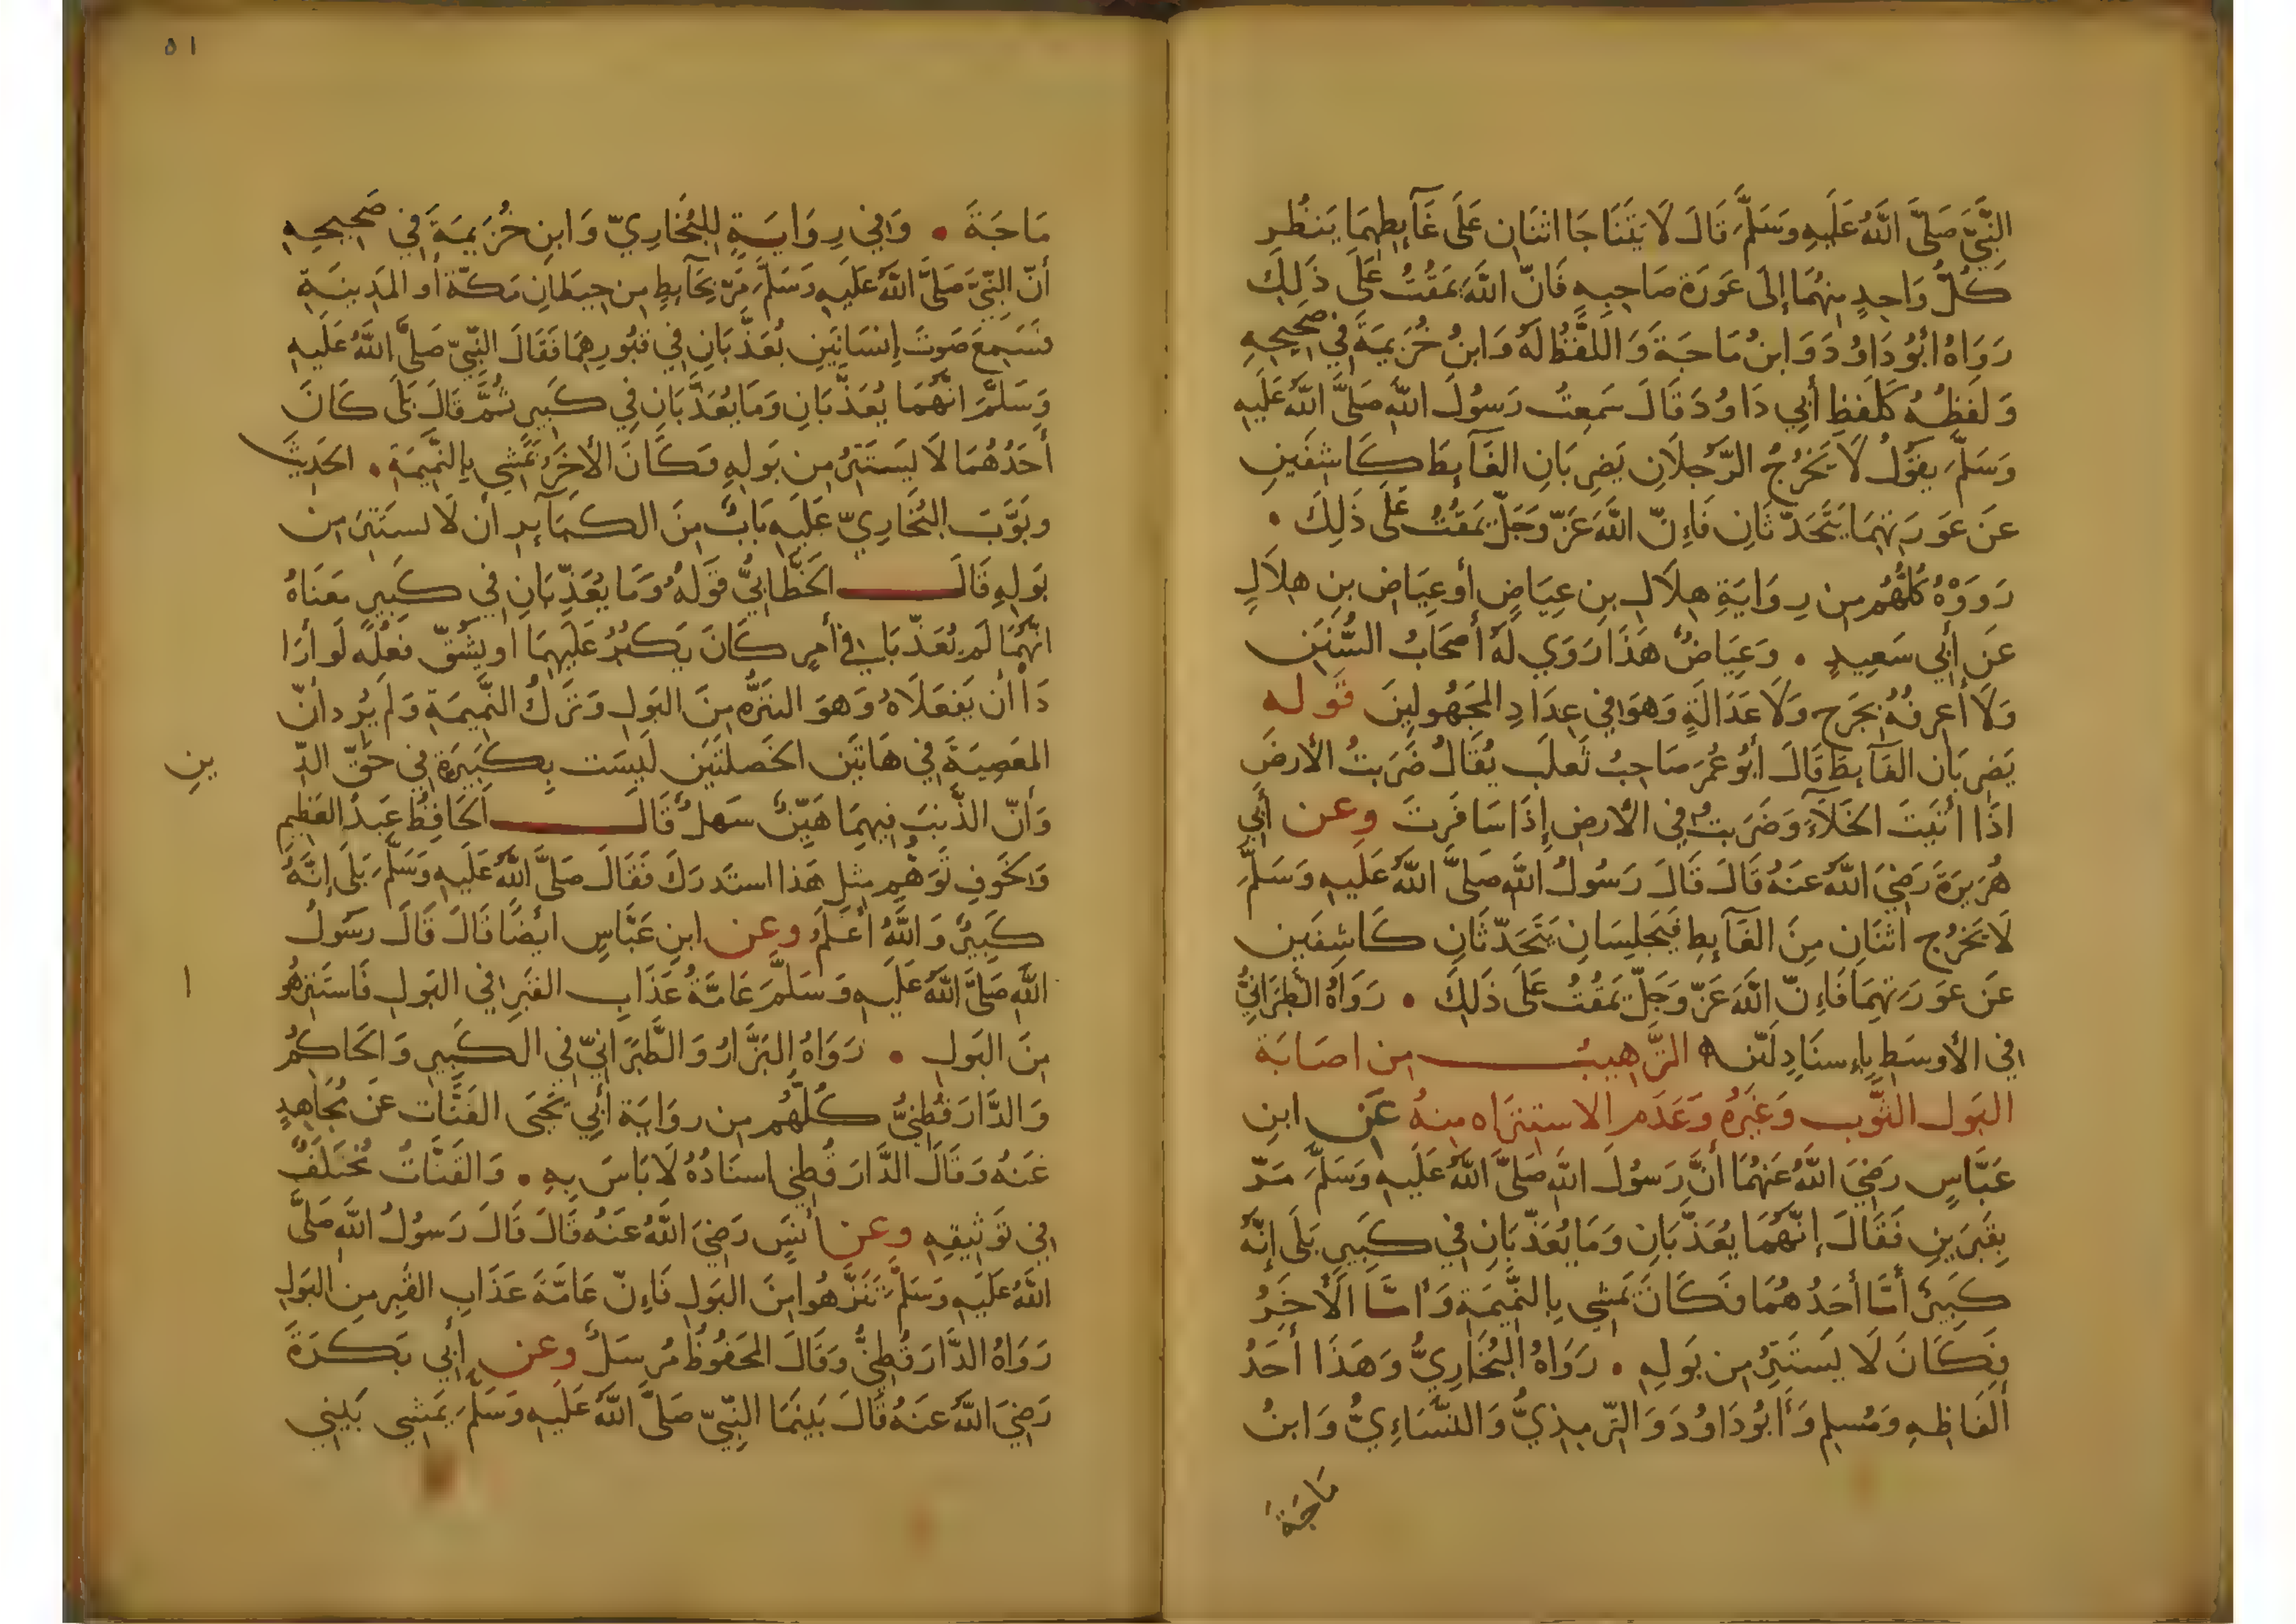 النَّبِيَّ صَلَّى اللَّهُ عَلَيهِ وَسَلَّمَ قَالَ لَا يَتَنَاجَا اثنَانِ عَلَى غَآيِطِهِمَا يَنظُرِ
كُلُّ وَاحِدٍ مِنهُمَا إِلَى عَورَة صَاحِبِهِ فَانّ اللَّهَ يَمقُتُ عَلَى ذَلِكَ
رَوَاهُ أَبُو دَاوُدَ وَابنُ مَاجَةَ وَاللَّفظُ لَهُ وَابنُ خُزَيمَةَ فِي صَحِيحِهِ
وَلَفظُهُ كَلَفظِ أَبِي دَاوُدَ قَالَ سَمِعتُ رَسُولَ اللَّهِ صَلَّى اللَّهُ عَلَيهِ
وَسَلَّمَ يقَولُ لَا يَخرُجُ الرَّجُلَانِ يَضرِبَانِ الغَآيِطَ كَاشِفَينِ
عَن عَورَتهِمَا يَتَحَدّثَانِ فَإِنّ اللَّهَ عَزّ وَجَلّ يَمقُتُ عَلَى ذَلِكَ •
رَوَوْهُ كُلُّهُم مِن رِوَايَةِ هِلَالِ بنِ عِيَاضٍ أَو عِيَاضِ بنِ هِلَالٍ
عَن أَبِي سَعِيدٍ • وَعِيَاضُ هَذَا رَوَي لَهُ أَصحَابُ السُّنَنِ
وَلَا أَعرِفُهُ بِجَرح وَلَا عَدَالَةٍ وَهوَ فِي عِدَادِ المَجهُولِينَ قوله
يَضرِبَان الغَآيِطَ قَالَ أَبُو عُمَرَ صَاحِبُ ثَعلَبِ يُقَالُ ضَرَبتُ الأَرضَ
اذَا أَتَيتَ الخَلَآءَ وَضَرَبتُ فِي الأَرضِ إِذَا سَافَرتَ وعن أَبِي
هُرَيرَةَ رَضِيَ اللَّهُ عَنهُ قَالَ قَالَ رَسُولُ اللَّهِ صَلَّى اللَّهُ عَلَيهِ وَسَلَّمَ
لَا يَخرُج اثنَانِ مِنَ الغَآيِطِ فَيَجلِسَانِ يَتَحَدّثَانِ كَاشِفَينِ
عَن عَورَتهِمَا فَإِنّ اللَّهَ عَزّ وَجَلّ يَمقُتُ عَلَى ذَلِكَ • رَوَاهُ الطَّبَرَانِيُّ
فِي الأَوسَطِ بِإِسنَادٍ لَيّن ه الترَّهيبُ من اصَابَة
البَول الثّوبِ وَغَيرُهُ وَعَدَم الاستنزَاه مِنهُ عَن ابنِ
عَبَّاسٍ رَضِيَ اللَّهُ عَنهُمَا أَنَّ رَسُولَ اللَّهِ صَلَّى اللَّهُ عَلَيهِ وَسَلَّمَ مَرّ
بِقَبرَينِ فَقَالَ إِنَّهُمَا يُعَذَّبَانِ وَمَا يُعَذَّبَانِ فِي كَبِيرٍ بَلَى إِنَّهُ
كَبِيرٌ أَمَّا أَحَدُهُمَا فَكَانَ يَمشِي بِالنَّمِيمَةِ وَأَمَّا الأَخَرُ
فَكَانَ لَا يَستَتِرُ مِن بَولِهِ • رَوَاهُ البُخَارِيُّ وَهَذَا أَحَدُ
أَلفَاظِهِ وَمُسلِم وَأَبُو دَاوُدَ وَالتِّرمِذِيُّ وَالنَّسَاءِيُّ وَابنُ
مَاجَةَ
٥١
مَاجَةَ • وَفِي رِوَايَةٍ لِلبُخَارِيّ وَابنِ خُزَيمَةَ فِي صَحِيحِهِ
أَنّ النَّبِيَّ صَلَّى اللَّهُ عَلَيهِ وَسَلَّمَ مَرّ بِحَآيِطٍ مِن حِيطَانِ مَكّةَ أَو المَدِينَةِ
فَسَمِعَ صَوتَ إِنسَانَينِ يُعَذَّبَانِ فِي قُبُورِهِمَا فَقَالَ النَّبِيّ صَلَّى اللَّهُ عَلَيهِ
وَسَلَّمَ انَّهُمَا يُعَذَّبَانِ وَمَا يُعَذَّبَانِ فِي كَبِيرٍ ثُمَّ قَالَ بَلَى كَانَ
أَحَدُهُمَا لَا يَستَتِرُ مِن بَولِهِ وَكَانَ الأَخَرُ يَمشِي بِالنَّمِيمَةِ • الحَدِيثَ
وبَوَّبَ البُخَارِيّ عَلَيهِ بَابٌ مِنَ الكبَآيِرِ أَن لَا يستَتِرَ مِن
بَولِهِ قَالَ الخَطَّابِيُّ قَولَهُ وَمَا يُعَذّبَانِ فِي كَبِيرٍ مَعنَاهُ
انَّهُمَا لَم يُعَذَّبَا فِي أَمرٍ كَانَ يَكبُرُ عَلَيهِمَا أو يَشُقّ فعلُه لَو أَرَا
دَا أَن يَفعَلَاهُ وَهوَ التنَزُّه مِنَ البَولِ وَتَركُ النَّمِيمَةِ وَلَم يُرِد أَنّ
المَعصِيَةَ فِي هَاتَينِ الخَصلَتَينِ لَيسَت بِكَبِيرَةٍ فِي حَقّ الدّ
ينِ
وَأَنّ الذَّنبَ فِيهِمَا هَيِّنٌ سَهلٌ قَالَ الحَافِظُ عَبدُ العَظِيمِ
وَلخَوفِ تَوَهُّمِ مِثلِ هَذَا استَدرَكَ فَقَالَ صَلَّى اللَّهُ عَلَيهِ وَسَلَّمَ بَلَى إِنَّهُ
كَبِيرٌ وَاللَّهُ أَعلَمُ وعن ابنِ عَبَّاسٍ أَيضًا قَالَ قَالَ رَسُولُ
اللَّهِ صَلَّى اللَّهُ عَلَيهِ وَسَلَّمَ عَامَّةُ عَذَابِ القَبرِ فِي البَولِ فَاستَنزِهُو
ا
مِنَ البَولِ • رَوَاهُ البَزَّارُ وَالطَّبَرَانِيّ فِي الكَبِيرِ وَالحَاكِمُ
وَالدَّارَقُطنِيُّ كُلُّهُم مِن رِوَايَةِ أَبِي يَحيَى القَتَّات عَن مُجَاهِدٍ
عَنهُ وَقَالَ الدَّارَقُطنِي اسنَادُهُ لَا بَاسَ بِهِ • وَالقَتَّاتُ مُختَلَفٌ
فِي تَوثِيقِهِ وعن أَنَسٍ رَضِيَ اللَّهُ عَنهُ قَالَ قَالَ رَسُولُ اللَّهِ صَلَّى
اللَّهُ عَلَيهِ وَسَلَّمَ تَنَزَّهُوا مِنَ البَولِ فَإِنّ عَامَّةَ عَذَابِ القَبرِ مِن البَولِ
رَوَاهُ الدَّارَقُطنِيُّ وَقَالَ المَحفُوظُ مُرسَلٌ وعن أَبِي بَكرَةَ
رَضِيَ اللَّهُ عَنهُ قَالَ بَينَمَا النَّبِيّ صَلَّى اللَّهُ عَلَيهِ وَسَلَّمَ يَمشِي بَينِي